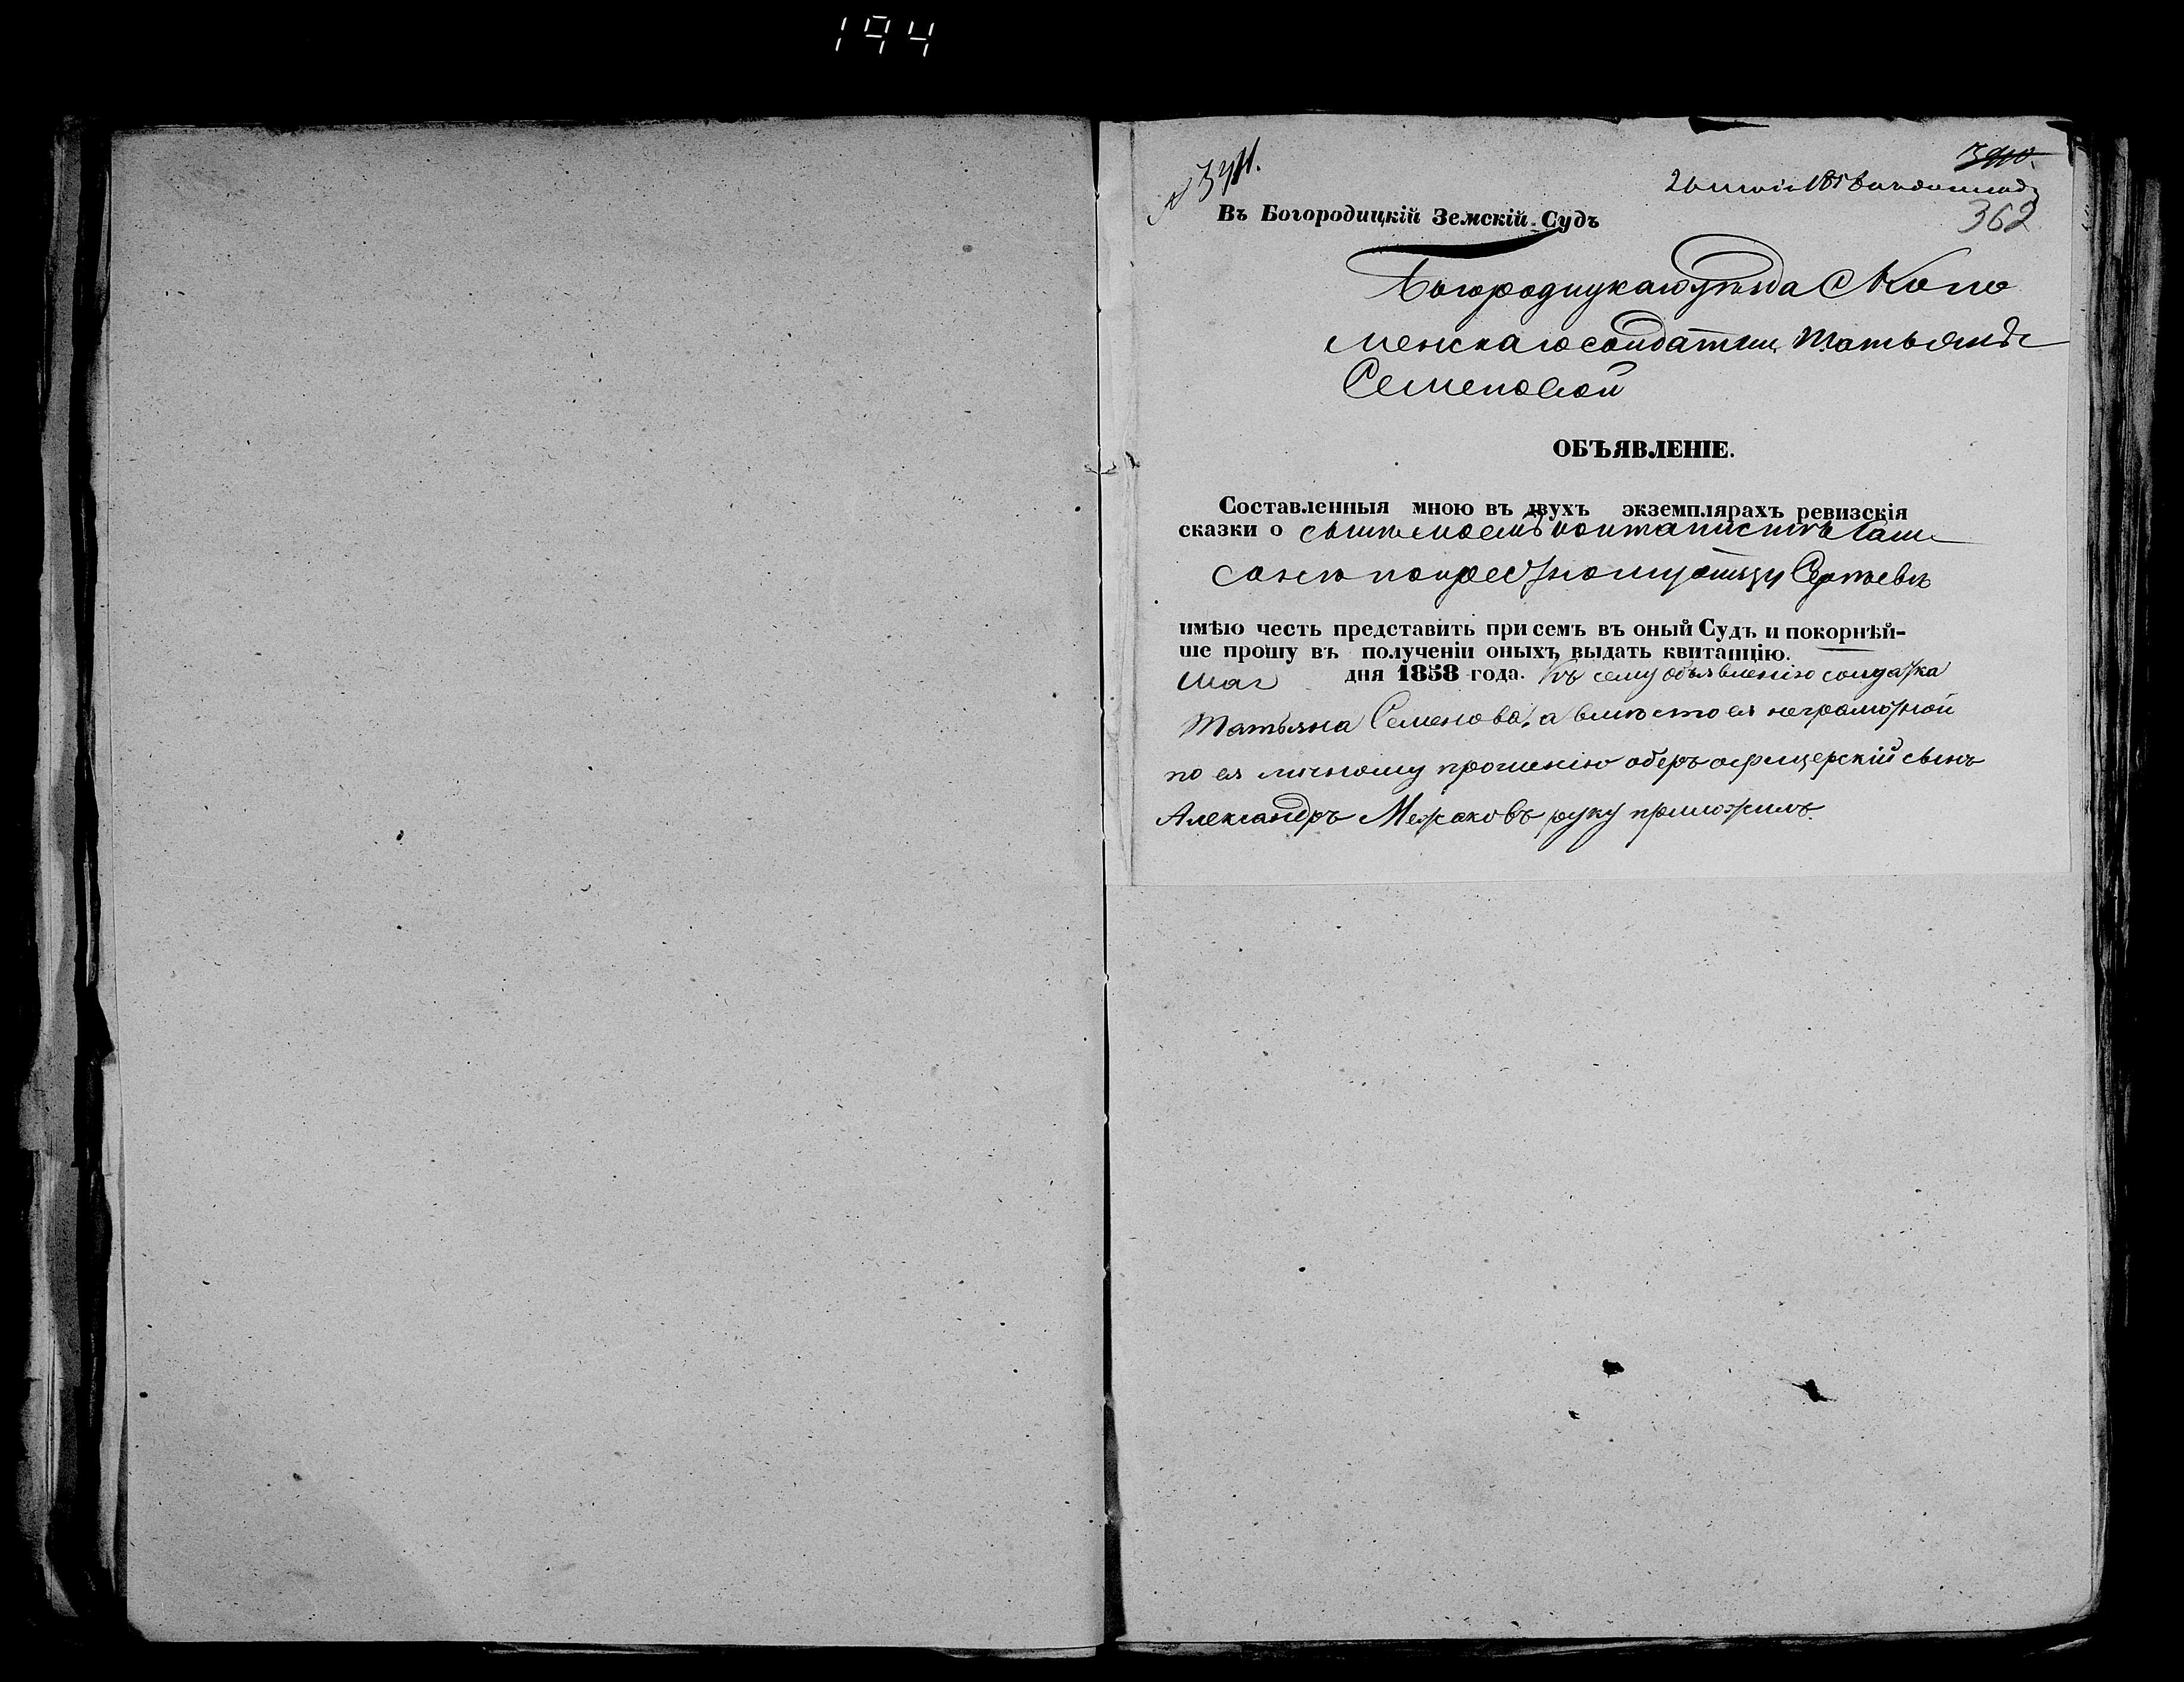 194
3910.
26 июня 1858
362
Въ Богородицкій Земскій Судъ
Богородицкаго уѣзда С Коло
менскаго солдатки Татьяны
Семеновой
ОБЪЯВЛЕНІЕ.
Составленныя мною въ двухъ экземплярахъ ревизскія
сказки о сынѣ моемъ кантанистѣ
по крестному отцу Сергѣевѣ
имѣю честь представить при семъ въ оный Судъ и покорнѣй-
ше прошу въ полученіи оныхъ выдать квитанцію.
Мая дня 1858 года. Къ сему объявленію солдатка
Татьяна Семенова, а вмѣсто ея неграмотной
по ея личному прошенію оберъ офицерскій сынъ
Александръ Межаковъ руку приложилъ.